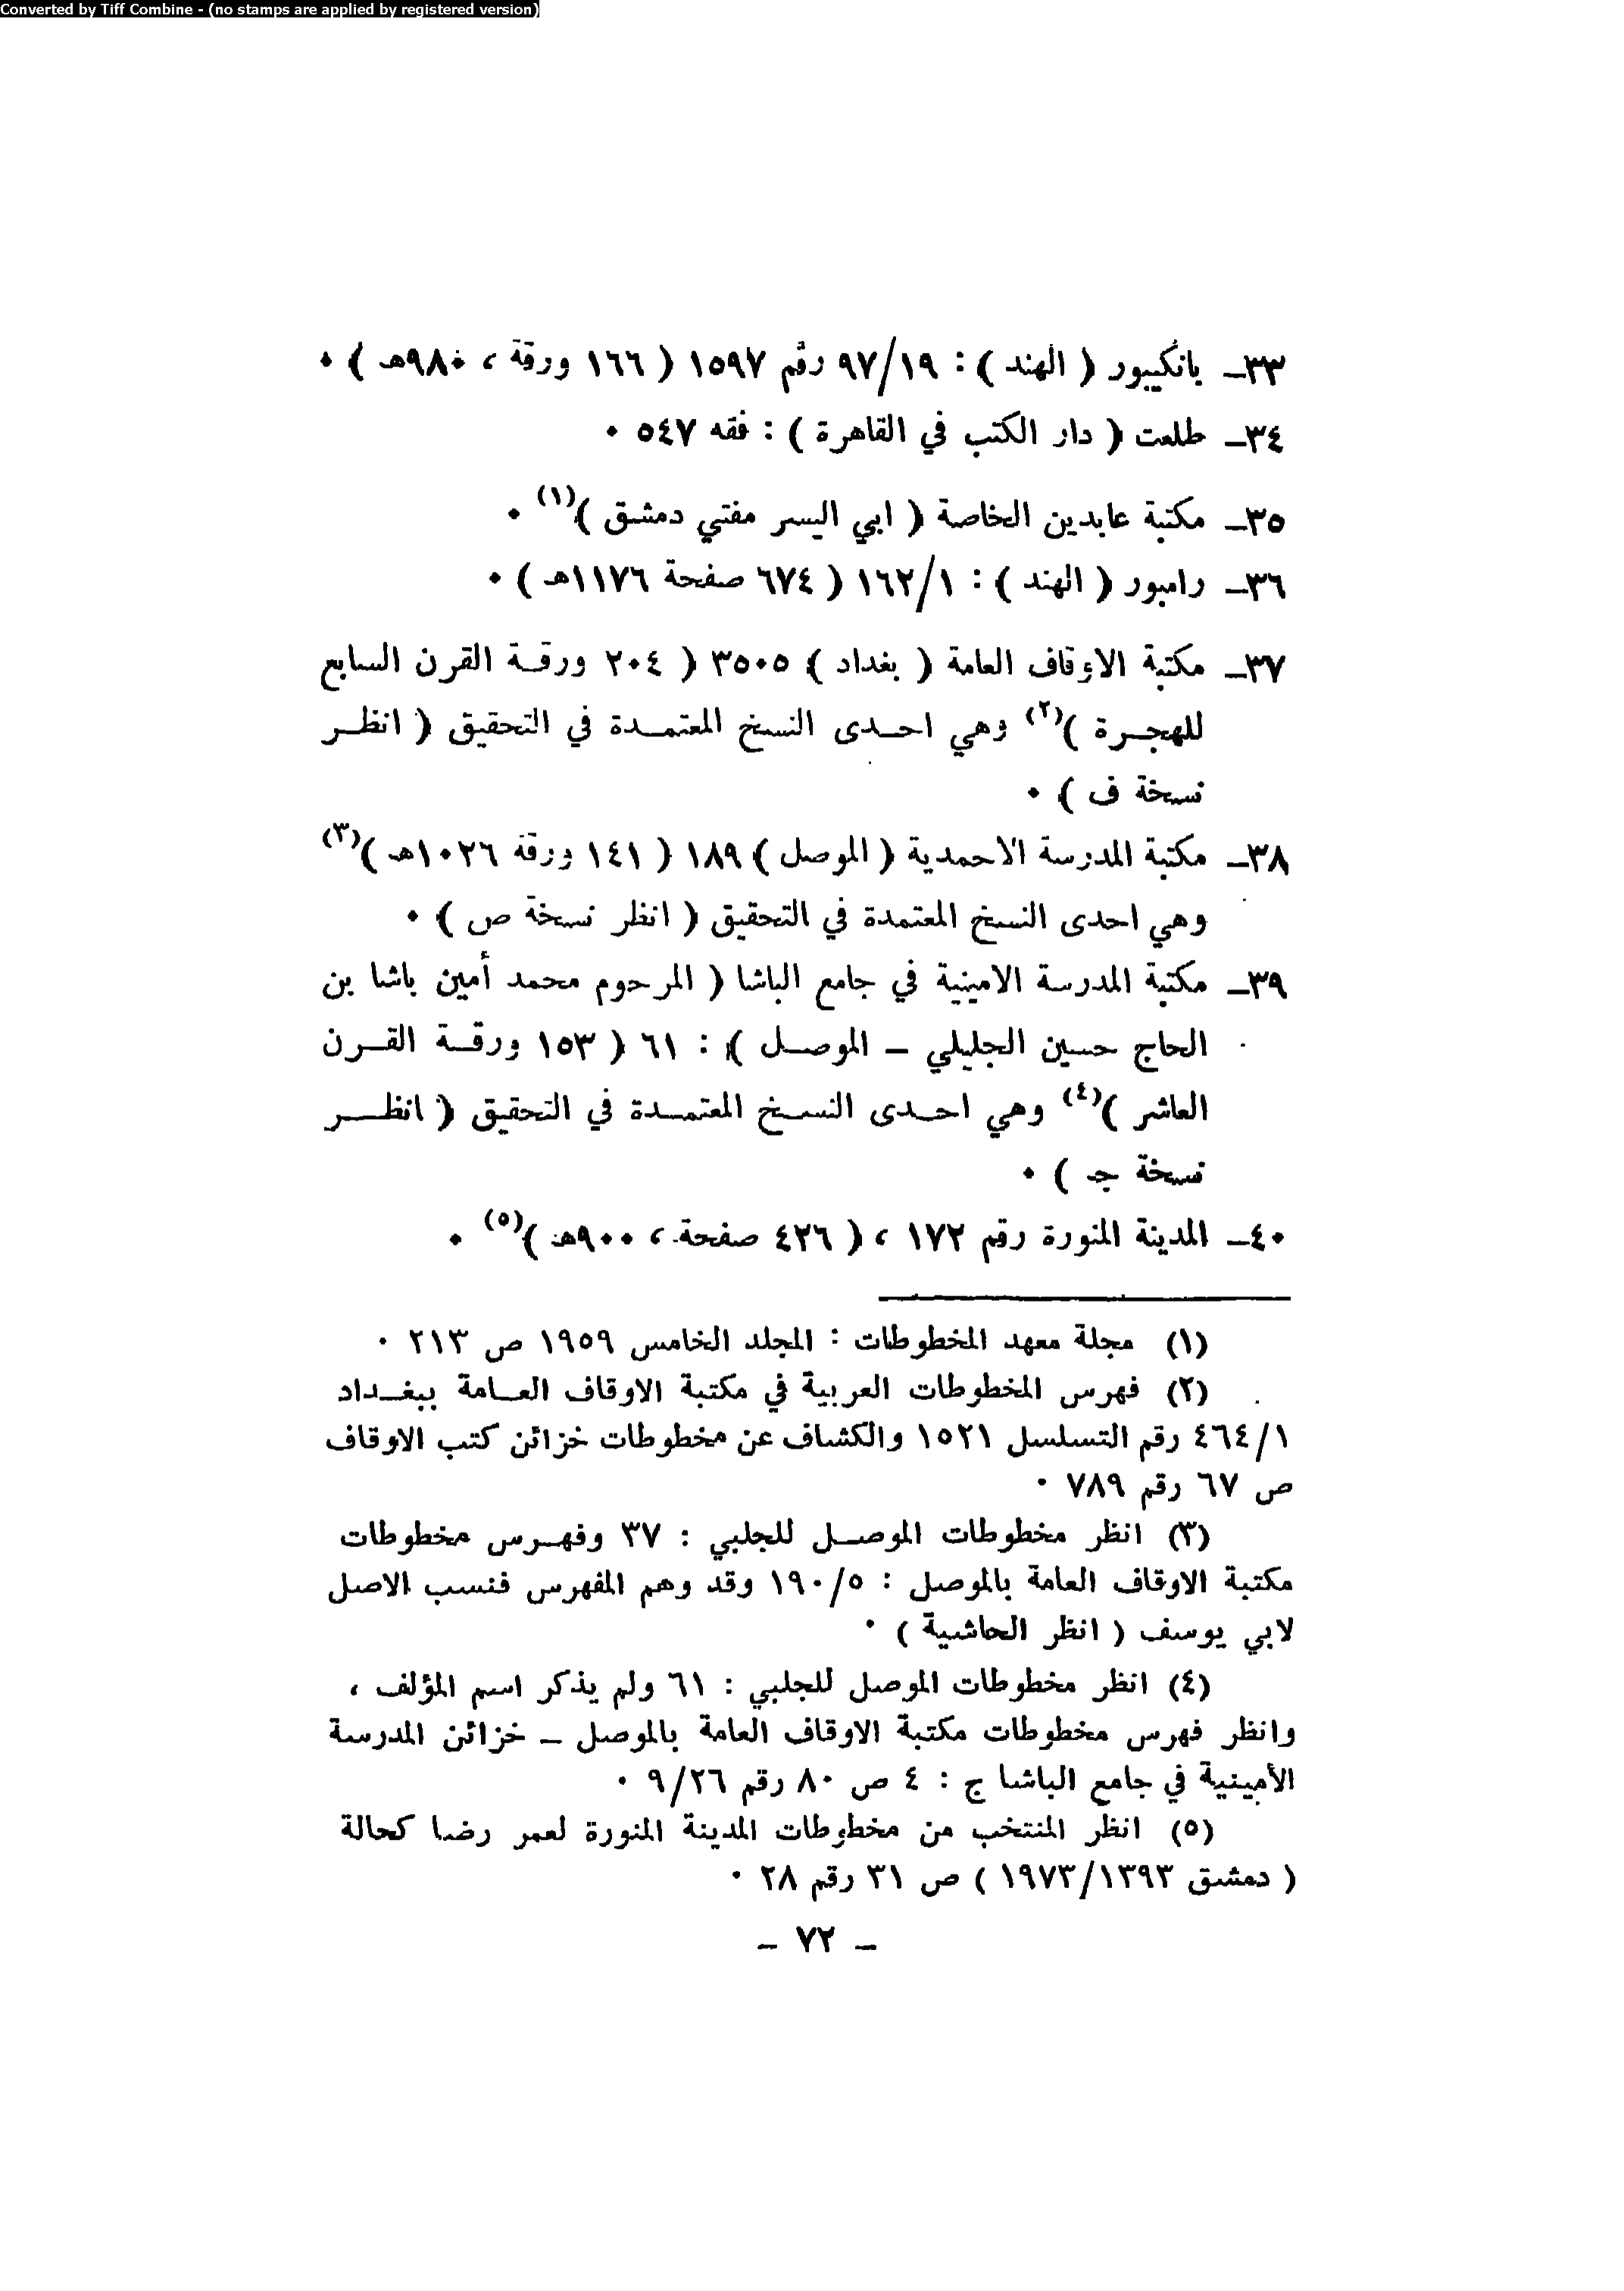 Converted by Tiff Combine - (no stamps are applied by registered version)
٣٣ـ بانكيبور ( الهند ) : ٩٧/١٩ رقم ١٥٩٧ ( ١٦٦ ورقة ، ٩٨٠هـ ) ٠
٣٤ـ طلعت ( دار الكتب في القاهرة ) : فقه ٥٤٧ ٠
٣٥ـ مكتبة عابدين الخاصة ( ابي اليسر مفتي دمشق )(١) ٠
٣٦ـ رامبور ( الهند ) : ١٦٢/١ ( ٦٧٤ صفحة ١١٧٦هـ ) ٠
٣٧ـ مكتبة الاوقاف العامة ( بغداد ) ٣٥٠٥ ( ٢٠٤ ورقـة القرن السابع
للهجـرة )(٢) وهي احـدى النسخ المعتمـدة في التحقيق ( انظـر
نسخة ف ) ٠
٣٨ـ مكتبة المدرسة الاحمدية ( الموصل ) ١٨٩ ( ١٤١ ورقة ١٠٢٦هـ )(٣)
وهي احدى النسخ المعتمدة في التحقيق ( انظر نسخة ص ) ٠
٣٩ـ مكتبة المدرسة الامينية في جامع الباشا ( المرحوم محمد أمين باشا بن
الحاج حسين الجليلي ـ الموصـل ) : ٦١ ( ١٥٣ ورقـة القـرن
العاشر )(٤) وهي احـدى النسـخ المعتمـدة في التحقيق ( انظـر
نسخة جـ ) ٠
٤٠ـ المدينة المنورة رقم ١٧٢ ، ( ٤٢٦ صفحة ، ٩٠٠هـ )(٥) ٠
(١) مجلة معهد المخطوطات : المجلد الخامس ١٩٥٩ ص ٢١٣ ٠
(٢) فهرس المخطوطات العربية في مكتبة الاوقاف العـامة ببغـداد
٤٦٤/١ رقم التسلسل ١٥٢١ والكشاف عن مخطوطات خزائن كتب الاوقاف
ص ٦٧ رقم ٧٨٩ ٠
(٣) انظر مخطوطات الموصـل للجلبي : ٣٧ وفهـرس مخطوطات
مكتبة الاوقاف العامة بالموصل : ١٩٠/٥ وقد وهم المفهرس فنسب الاصل
لابي يوسف ( انظر الحاشية ) ٠
(٤) انظر مخطوطات الموصل للجلبي : ٦١ ولم يذكر اسم المؤلف ،
وانظر فهرس مخطوطات مكتبة الاوقاف العامة بالموصل ـ خزائن المدرسة
الأمينية في جامع الباشا ج : ٤ ص ٨٠ رقم ٩/٢٦ ٠
(٥) انظر المنتخب من مخطوطات المدينة المنورة لعمر رضا كحالة
( دمشق ١٩٧٣/١٣٩٣ ) ص ٣١ رقم ٢٨ ٠
ـ ٧٢ ـ